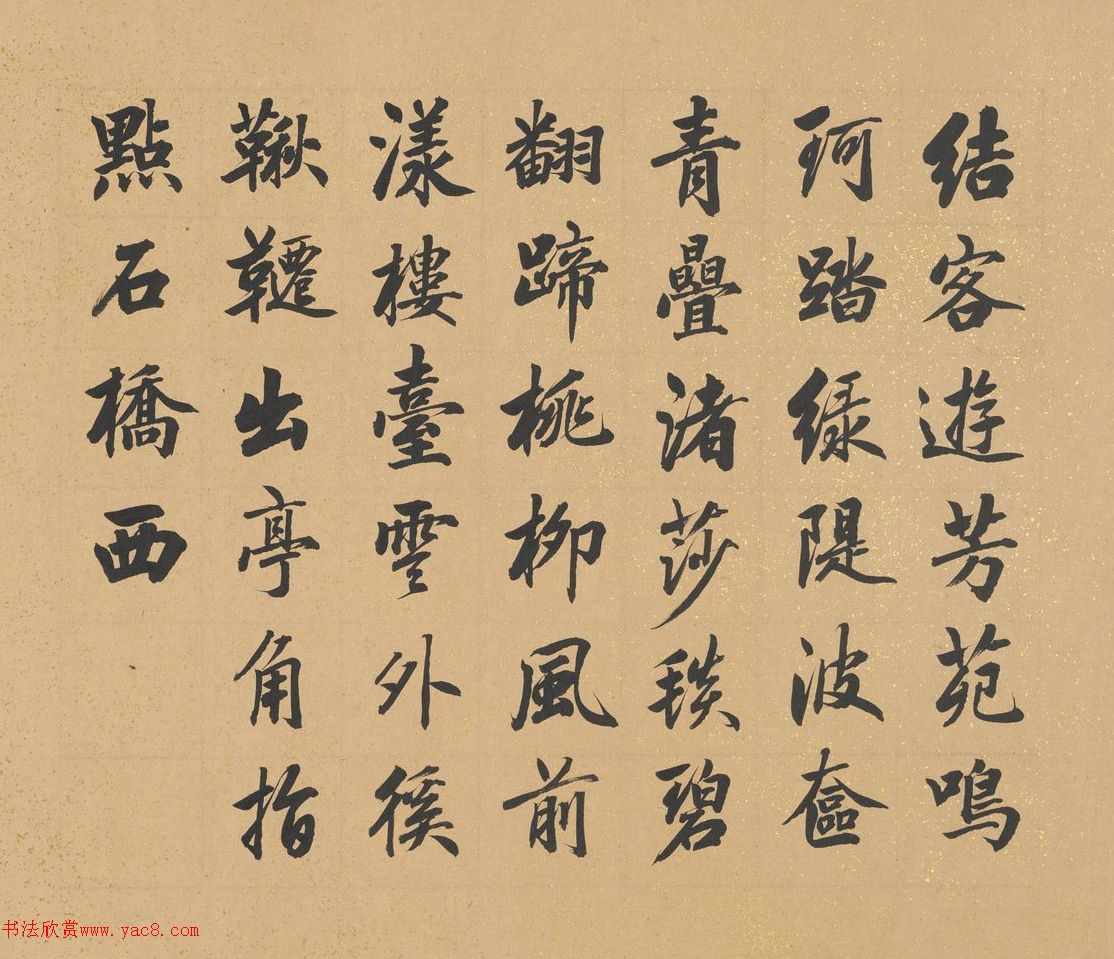 結客遊芳苑鳴
珂踏綠隄波奩
青疊渚莎毯碧
翻蹄桃柳風前
漾樓臺雲外徯
鞦韆出亭角指
點石橋西
书法欣赏www.yac8.com